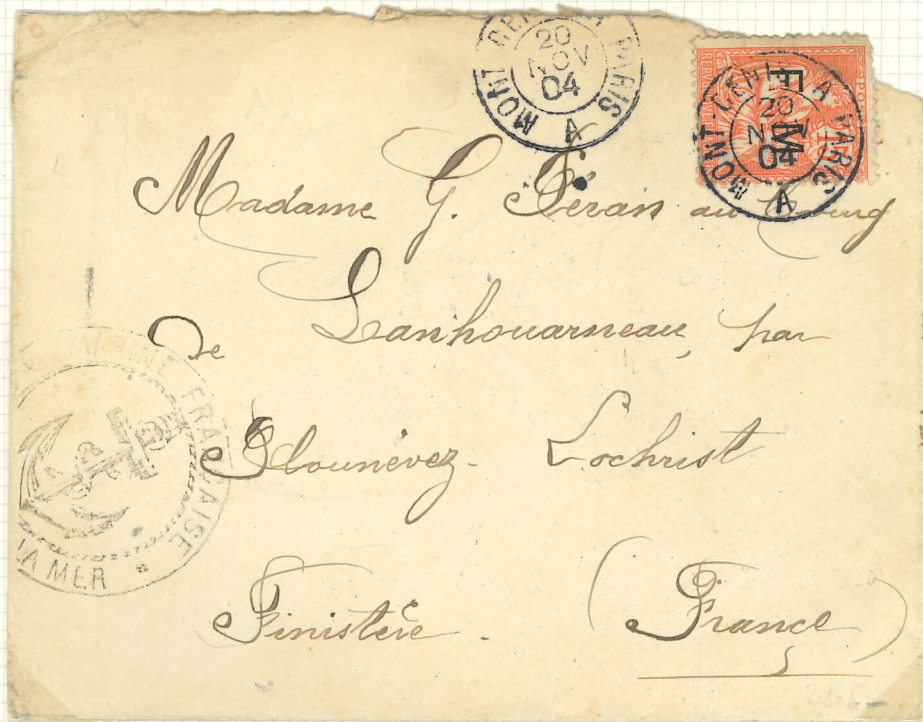 MONT CENIS A PARIS
20
NOV
04
A
F M
15
MONT CENIS A PARIS
20
04
A
Madame G. Péran au Bourg
De Lanhouarneau, par
Plounévez-Lochrist
Finistère. (France)
MARINE FRANÇAISE
LA MER *